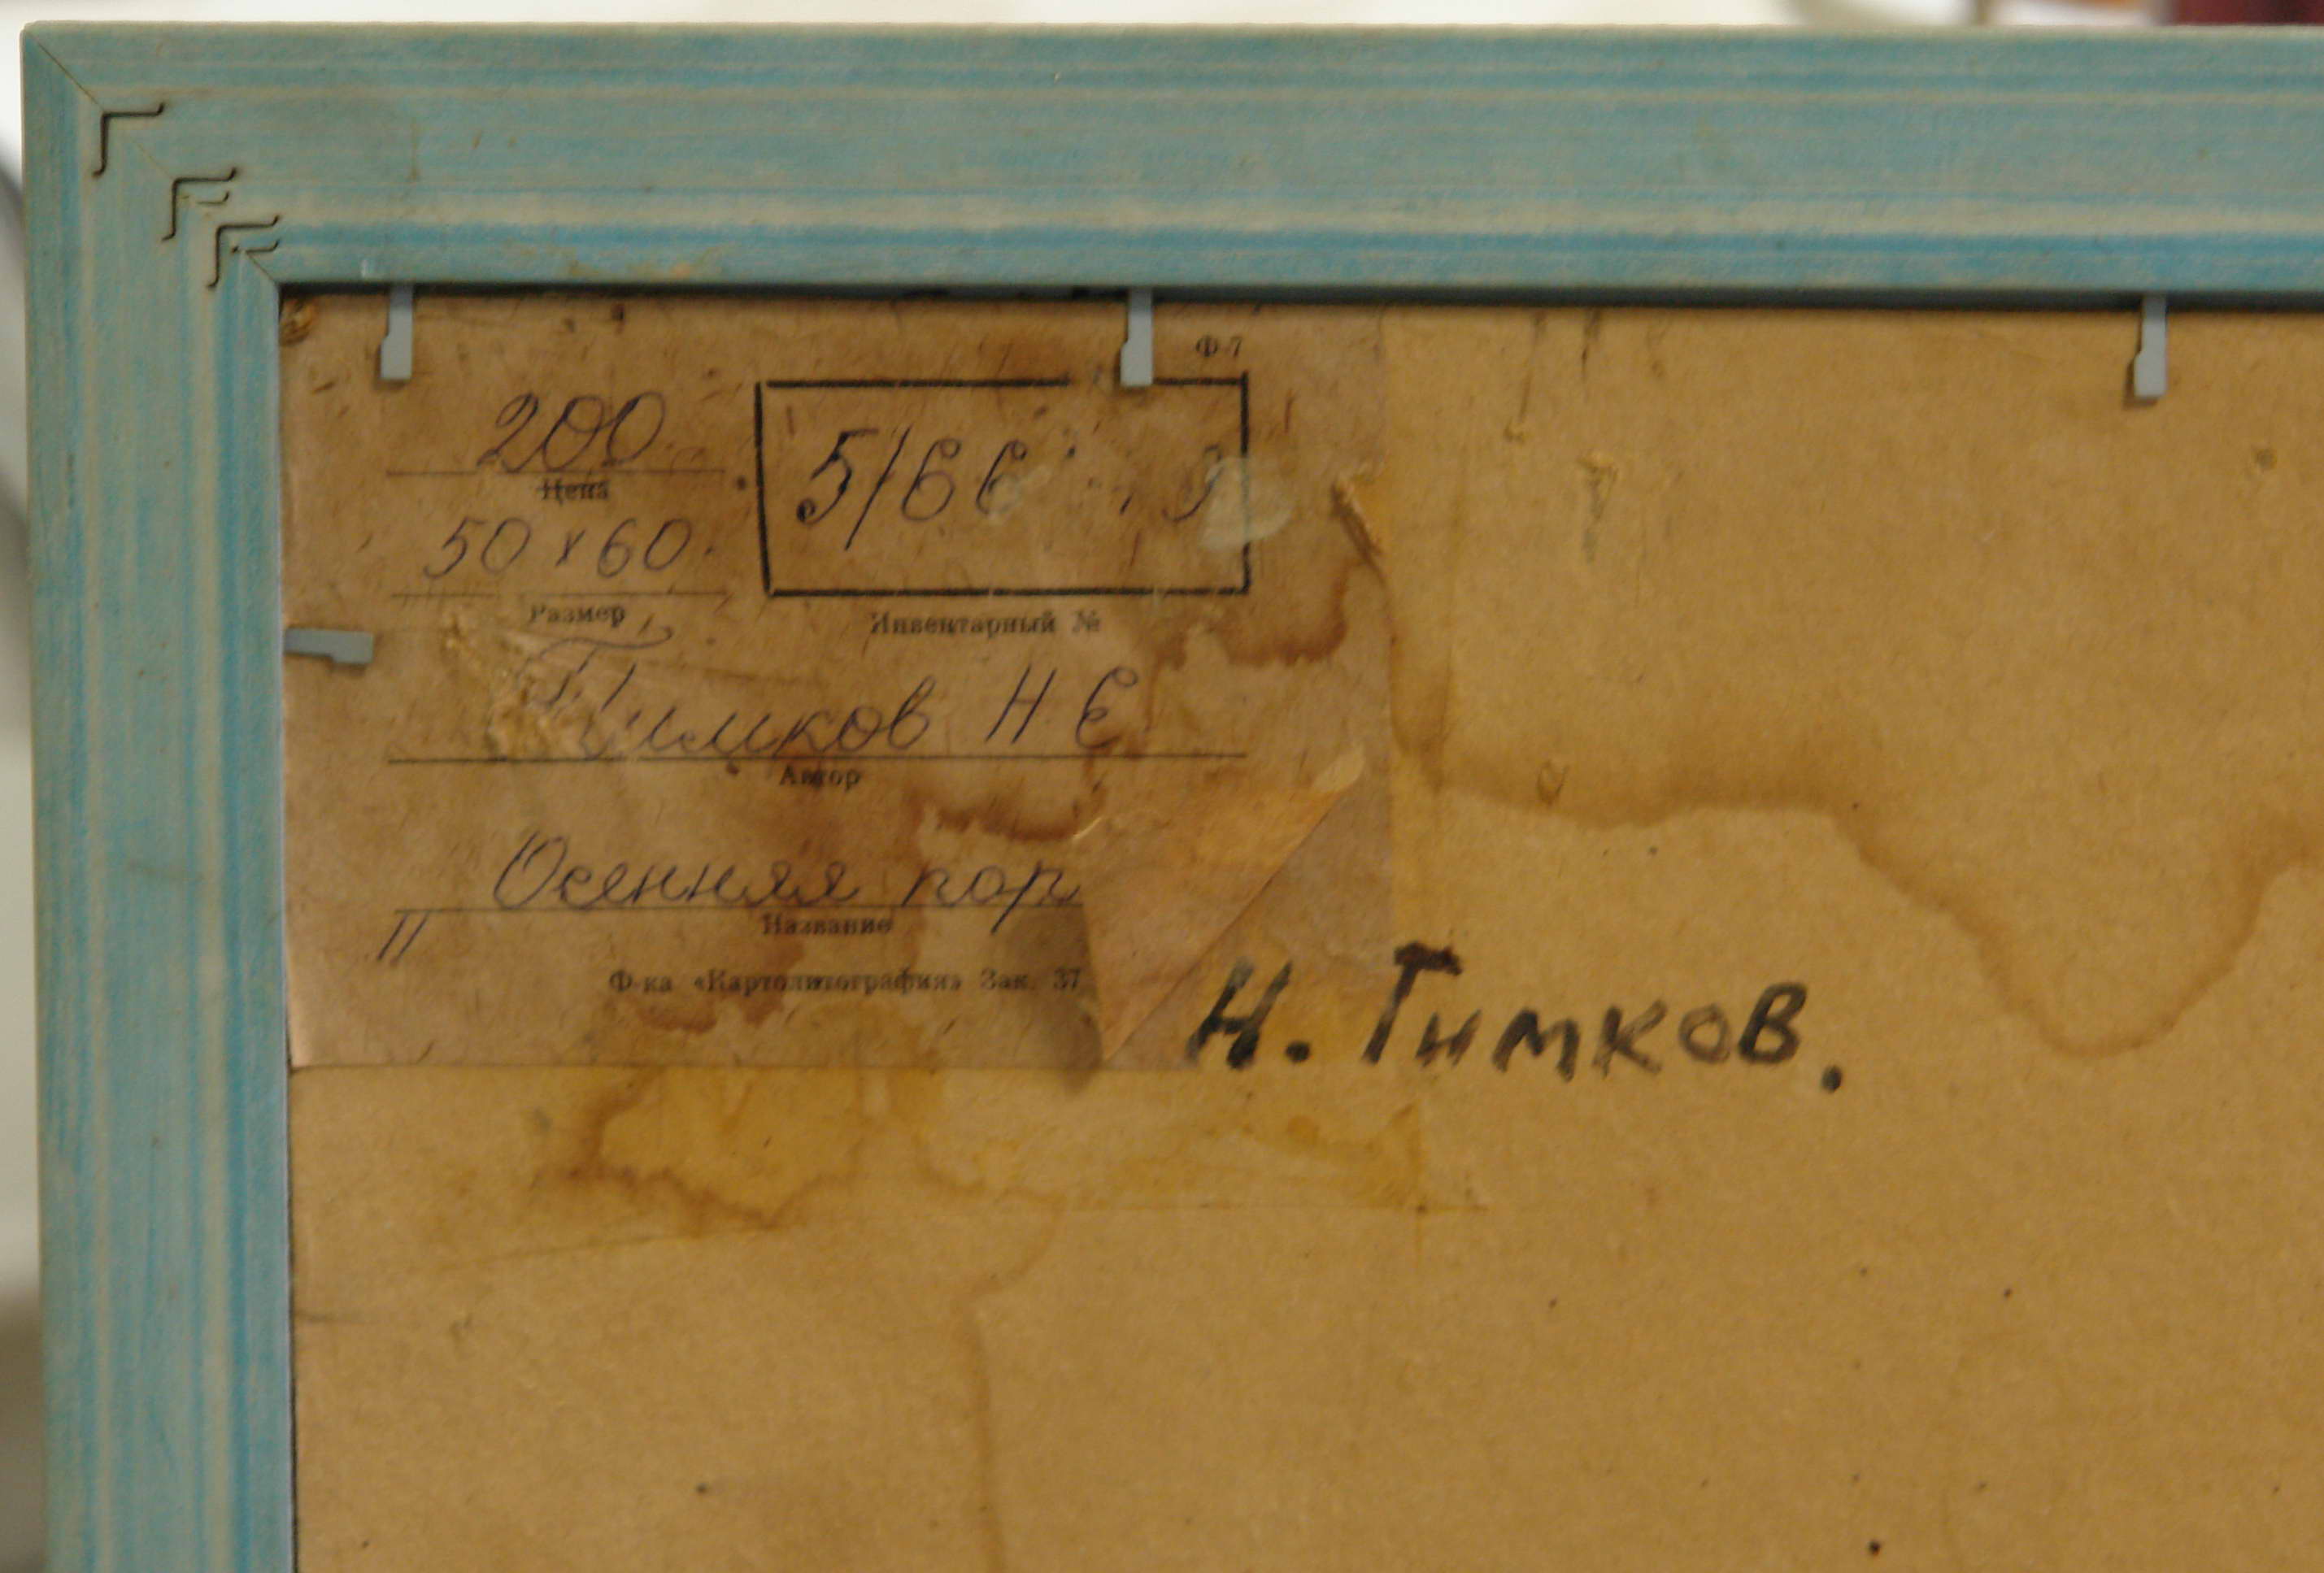 Ф-7
200
Цена
5/66
50 х 60
Размер
Инвентарный №
Тимков Н Е
Автор
Осенняя пор
Название
II
Ф-ка «Картолитография» Зак. 37
Н. Тимков.